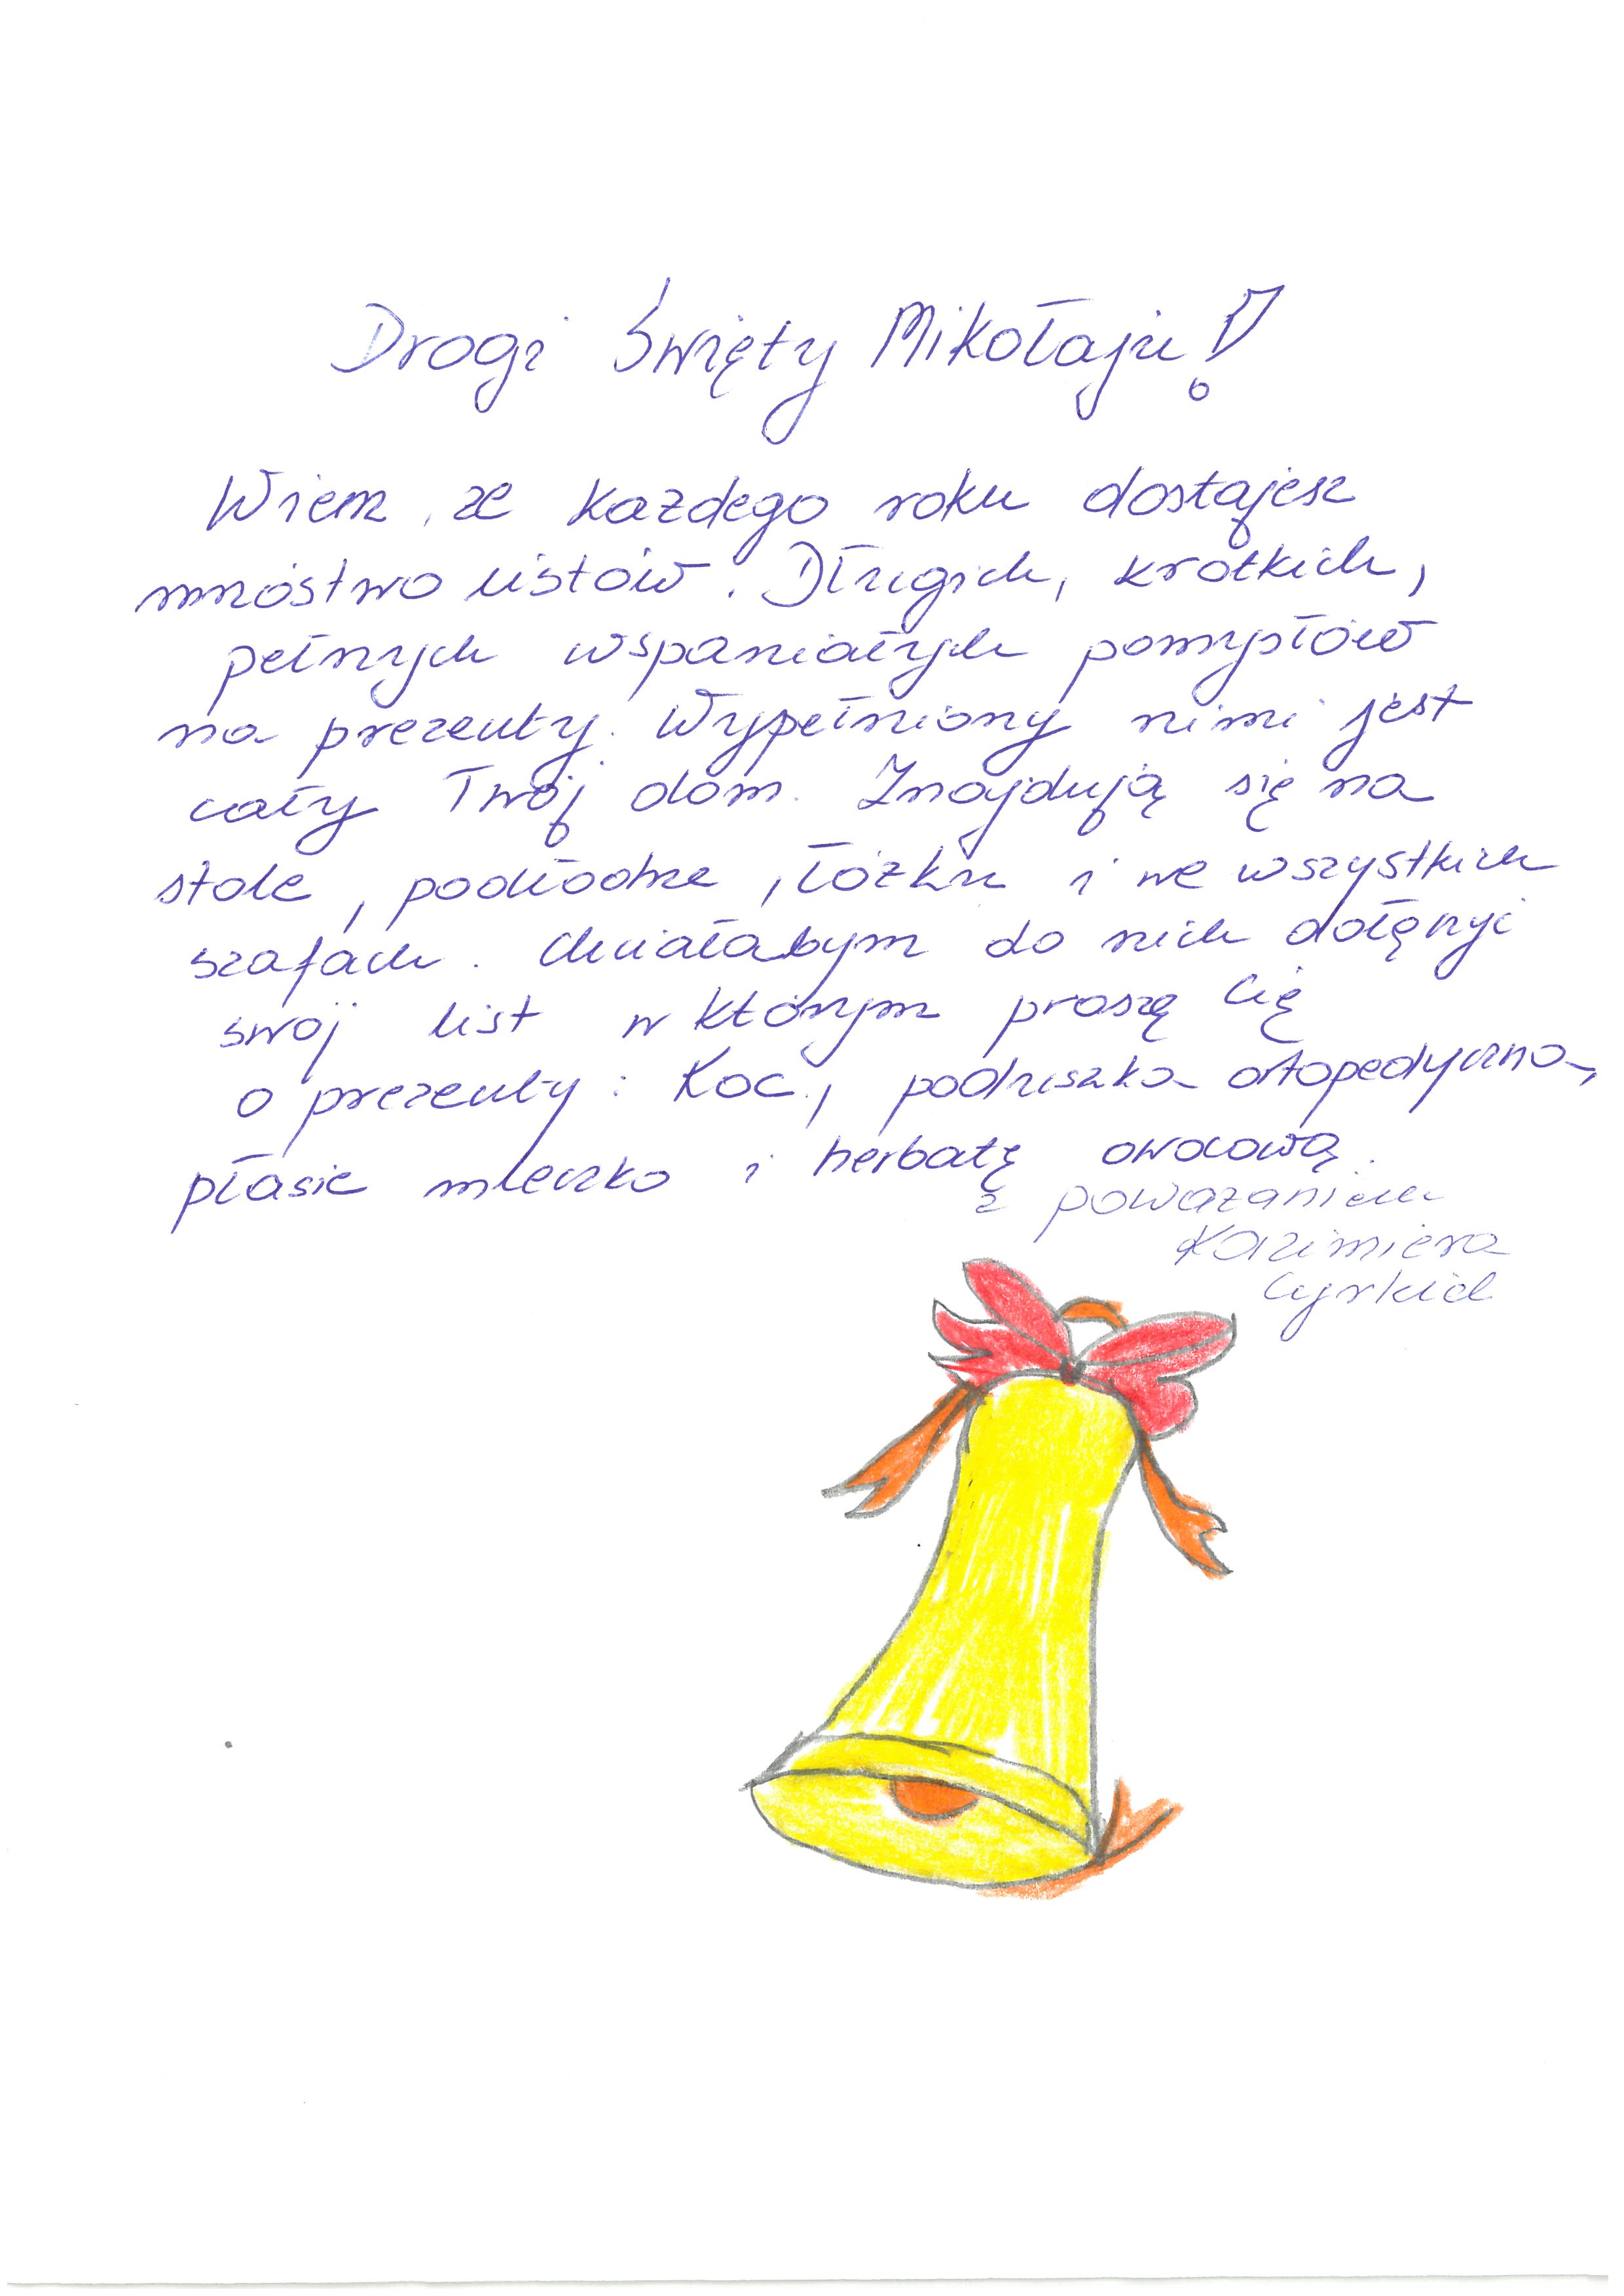 Drogi Święty Mikołaju!
Wiem, że każdego roku dostajesz
mnóstwo listów. Długich, krótkich,
pełnych wspaniałych pomysłów
na prezenty. Wypełniony nimi jest
cały Twój dom. Znajdują się na
stole, podłodze, łóżku i we wszystkich
szafach. Chciałabym do nich dołączyć
swój list w którym proszę Cię
o prezenty: Koc, poduszka ortopedyczna,
ptasie mleczko i herbatę owocową.
z poważaniem
Kazimiera